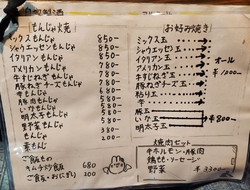 もんじゃ焼
ミックスもんじゃ 850-
シャウエッセンもんじゃ 850-
イタリアンもんじゃ 850-
アメリカンもんじゃ 850-
牛すじねぎもんじゃ 850-
豚ねぎチーズもんじゃ 850-
もんじゃ 800-
豚もんじゃ 800-
もんじゃ 800-
いかもんじゃ 800-
明太もんじゃ
野菜もんじゃ
もんじゃ
ご飯もの
キムチ炒飯 680
ご飯・おにぎり 100
お好み焼き
ミックス玉
シャウエッセン玉
イタリアン玉
アメリカン玉
牛すじねぎ玉
豚ねぎチーズ玉
オール
¥1000-
玉
豚玉
玉
いか玉
¥800-
明太玉
野菜玉
焼肉セット
牛ホルモン・豚
鶏もも・ソーセージ
野菜 ¥3300-